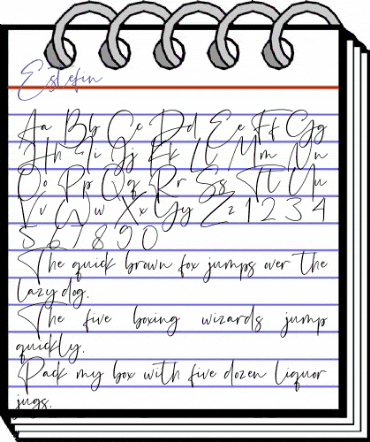 Estefin
Aa Bb Cc Dd Ee Ff Gg
Hh Ii Jj Kk Ll Mm Nn
Oo Pp Qq Rr Ss Tt Uu
Vv Ww Xx Yy Zz 1 2 3 4
5 6 7 8 9 0
The quick brown fox jumps over the
lazy dog.
The five boxing wizards jump
quickly.
Pack my box with five dozen liquor
jugs.